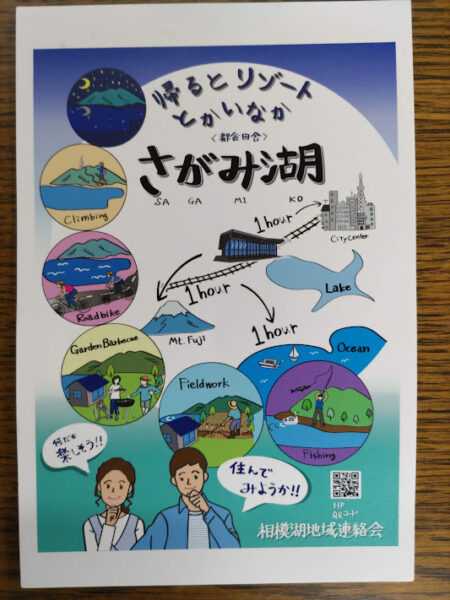 帰るとリゾート
とかいなか
〈都会田舎〉
さがみ湖
SA GA MI KO
Climbing
1 hour
City Center
Roadbike
1 hour
Lake
Mt. Fuji
1 hour
Garden Barbecue
Ocean
Fieldwork
Fishing
何だか
楽しそう!!
住んで
みようか!!
HP
QRコード
相模湖地域連絡会